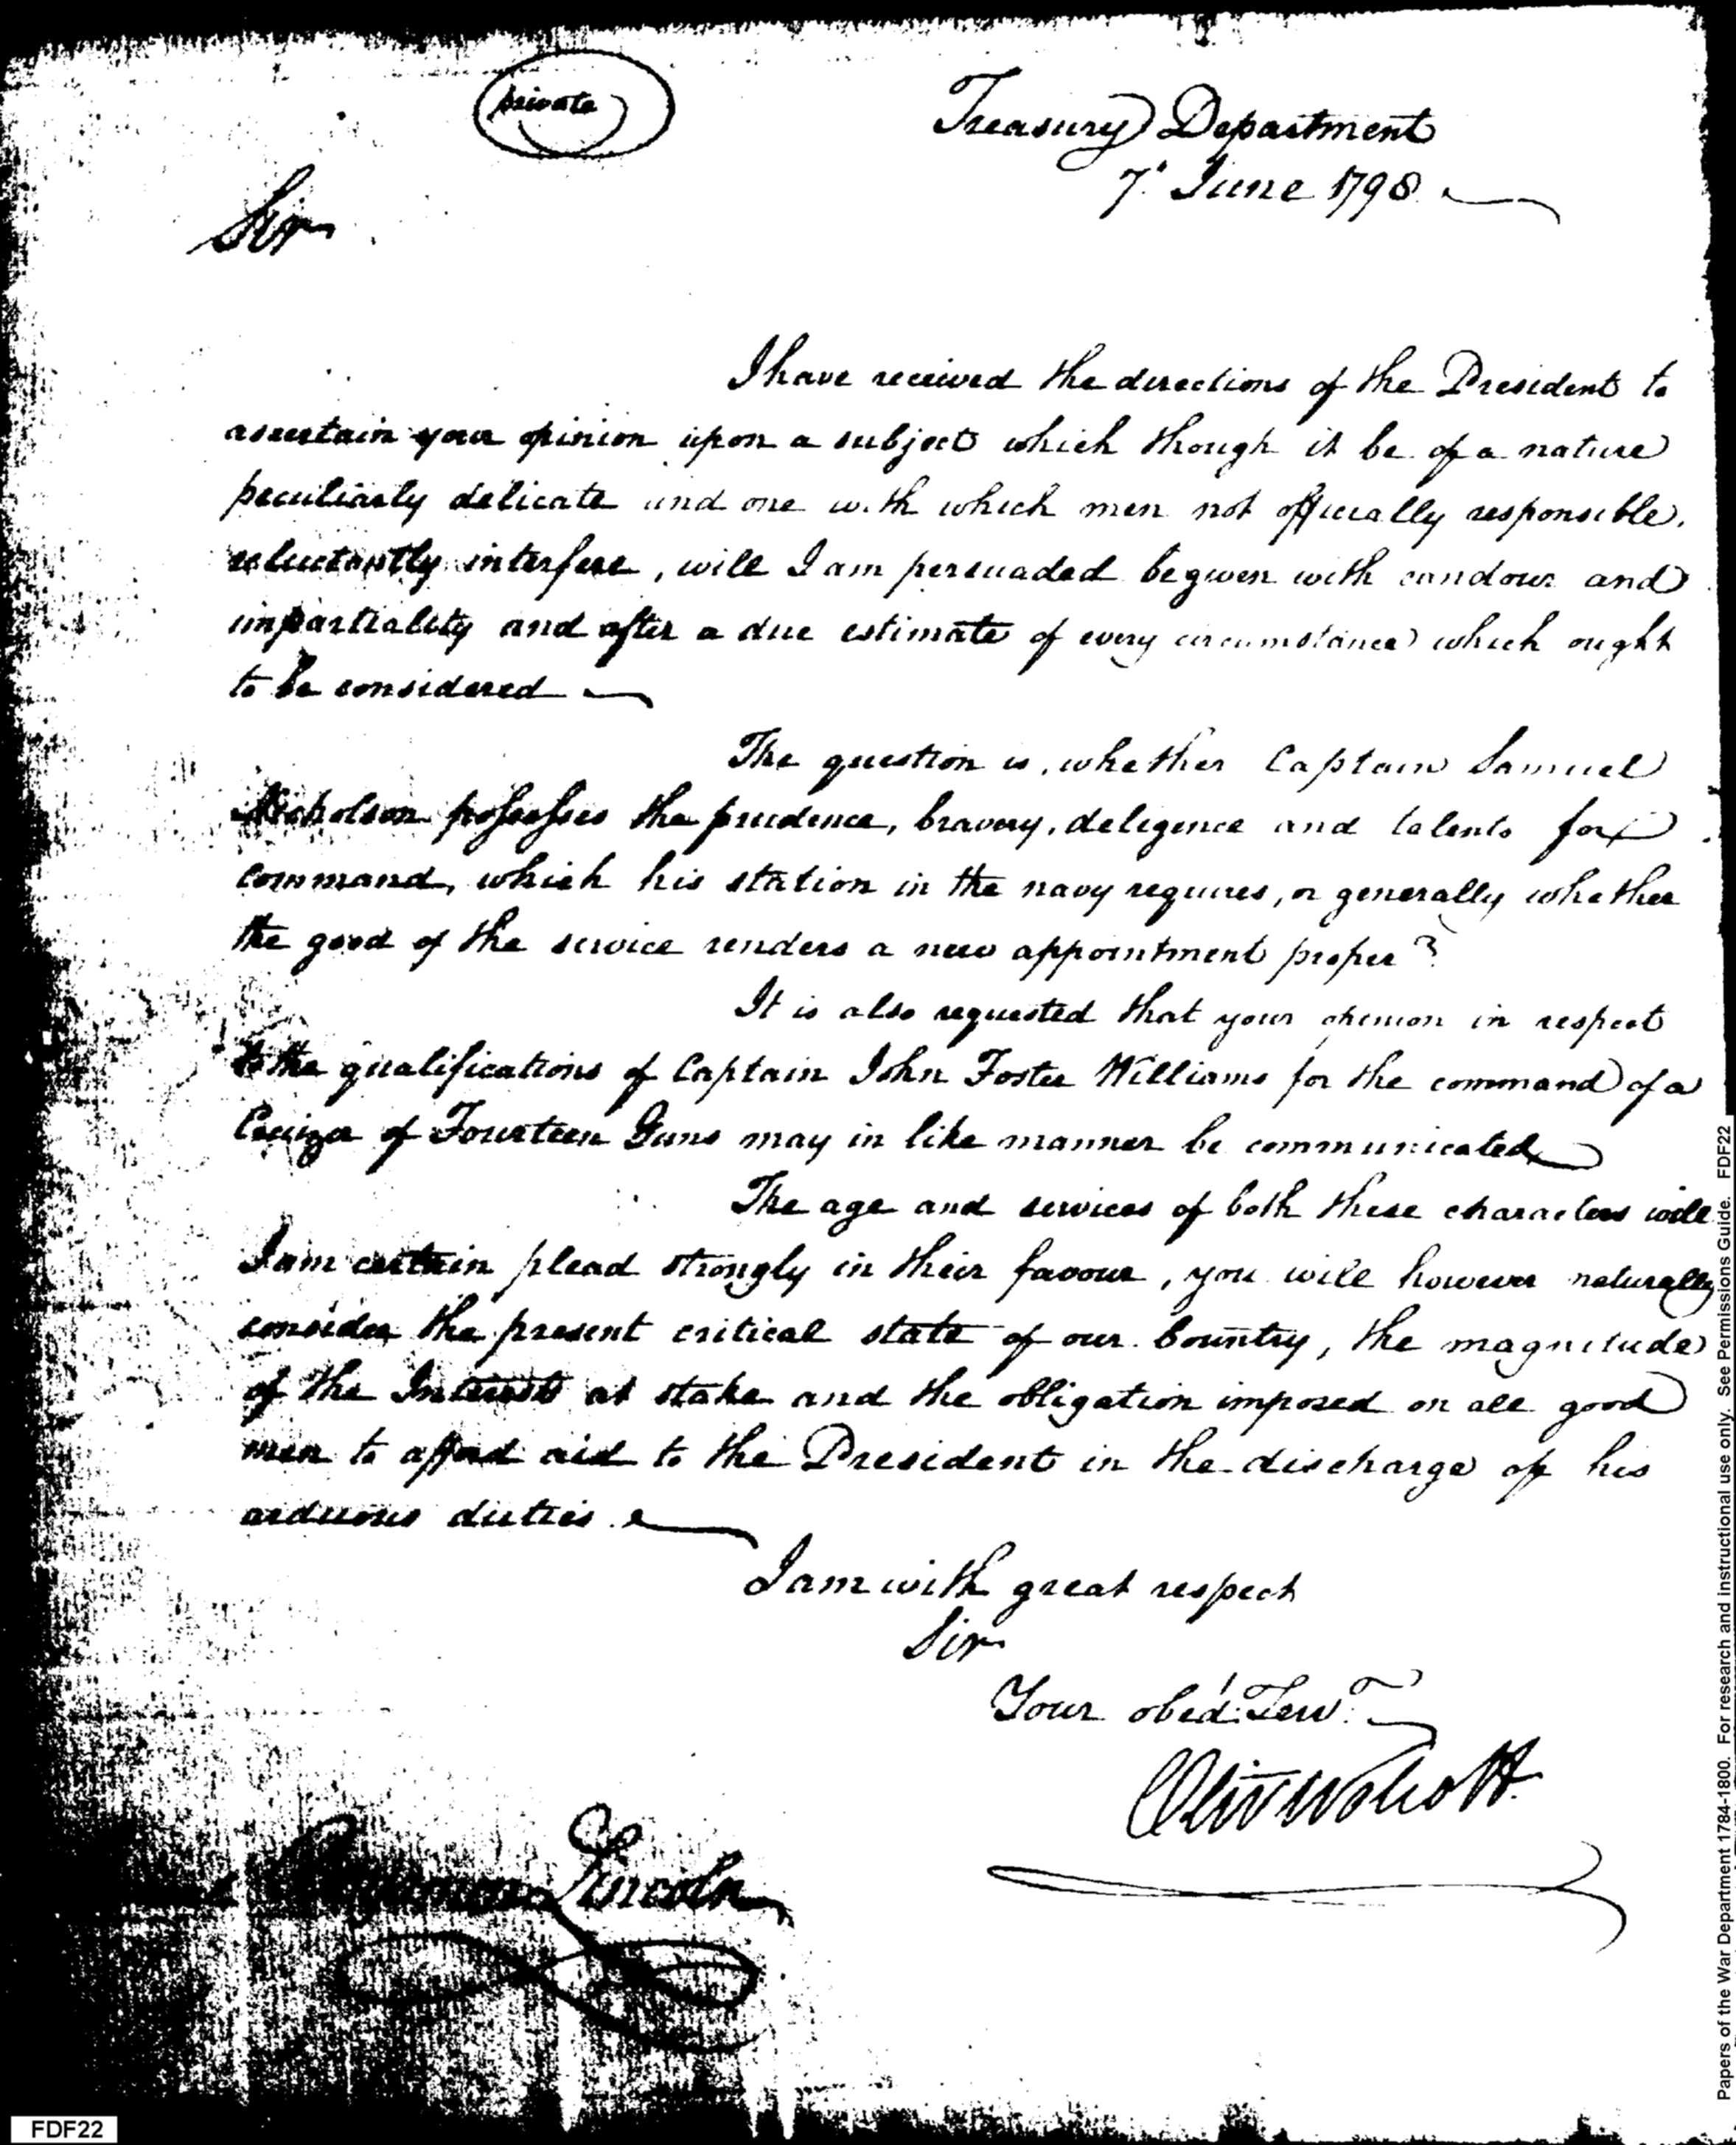 private
Treasury Department
7th June 1798.
Sir
I have received the directions of the President to
ascertain your opinion upon a subject which though it be of a nature
peculiarly delicate and one with which men not officially responsible,
reluctantly interfere, will I am persuaded be given with candour and
impartiality and after a due estimate of every circumstance which ought
to be considered
The question is, whether Captain Samuel
Nicholson possesses the prudence, bravery, deligence and talents for
command, which his station in the navy requires, or generally whether
the good of the service renders a new appointment proper?
It is also requested that your opinion in respect
to the qualifications of Captain John Foster Williams for the command of a
Cruizer of Fourteen Guns may in like manner be communicated
The age and services of both these characters will
I am certain plead strongly in their favour, you will however naturally
consider the present critical state of our Country, the magnitude
of the Interests at stake and the obligation imposed on all good
men to afford aid to the President in the discharge of his
arduous duties.
I am with great respect
Sir
Your obed. Servt.
Oliv Wolcott.
Benjamin Lincoln
FDF22
Papers of the War Department 1784-1800. For research and instructional use only. See Permissions Guide. FDF22